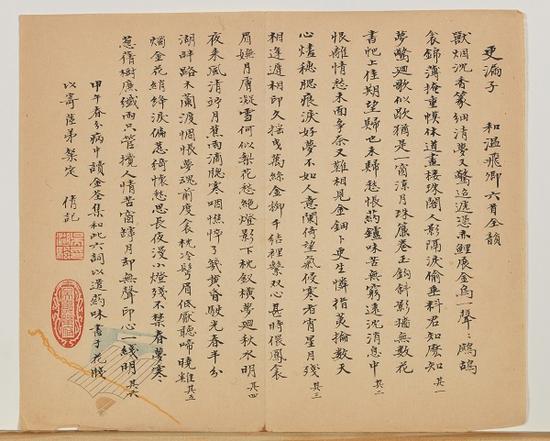 更漏子　和溫飛卿六首全韻
獸烟沈香篆細清夢又驚迢遞恐赤鯉戾金烏一聲〻鷓鴣
衾錦薄掩重幙休道畫樓珠閣人影隔淚偷垂料君知麽知 其一
夢驚迴歌似咽猶是一窗涼月珠簾卷玉鉤斜影牆無數花
書咫上佳期望歸也未歸愁悵葯鑪味苦無窮遠沈消息中 其二
恨離情愁未面爭奈又難相見金鈿卜更生憐措蓂掄數天
心燼穗腮痕淚好夢不如人意闌倚望氣侵寒者宵星月殘 其三
相逢遽相印久搖曳萬絲金柳千結裡繫双心甚時偎鳳衾
眉嫵月膚凝雪何似梨花愁絕燈影下枕釵橫夢迴秋水明 其四
夜来風清訝月蕉雨滴腮寒咽憔悴了幾黃昏駛光春半分
湖畔路木蘭渡惆悵夢魂前度衾枕冷鬢眉低厭聽啼曉雞 其五
燭金花綃絳淚偏惹綺懷愁思長夜漫小燈殘不禁春夢寒
蔥蒨樹廉纖雨只管攪人情苦窗罅月却無聲印心一綫明 其六
甲午春分病中讀金荃集和此六詞以遣葯味書于花牋
以寄弟粲定　倩記